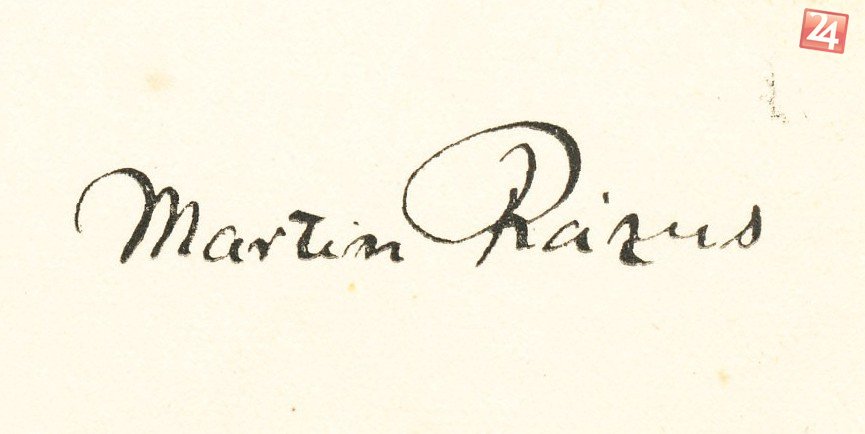 24
Martin Rázus